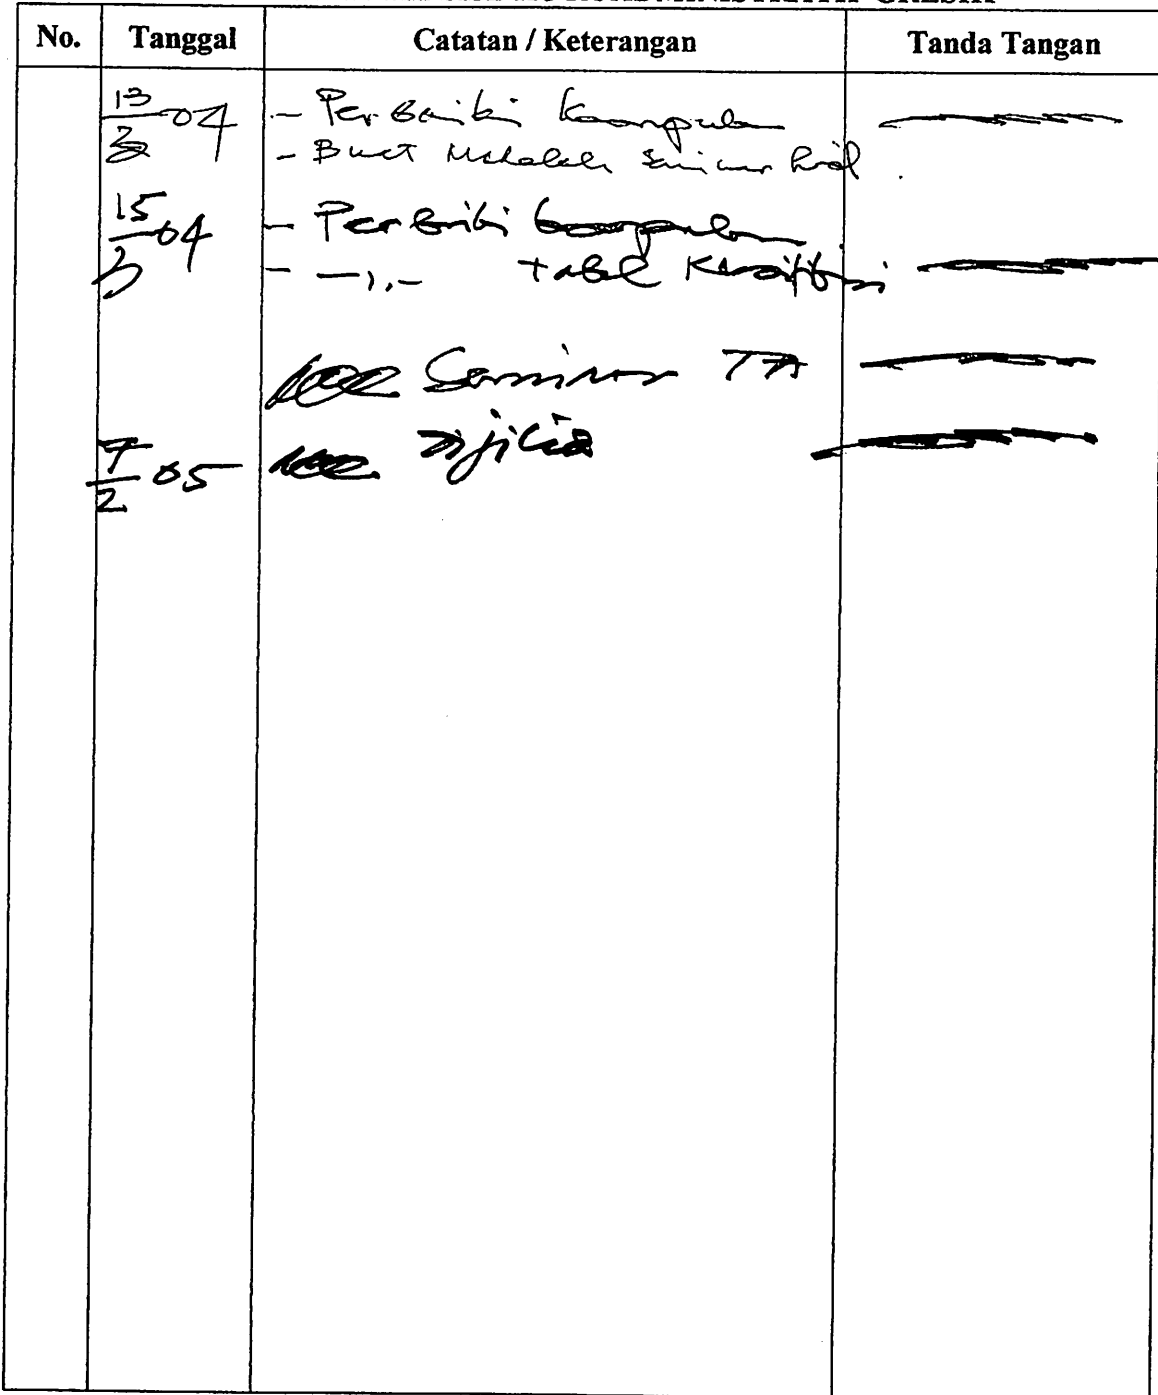 No. Tanggal Catatan / Keterangan Tanda Tangan
13/3 04 - Perbaiki Kesimpulan
- Buat Makalah Seminar
15/3 04 - Perbaiki kesimpulan
- —,,— tabel
acc Seminar TA
7/2 05 acc Dijilid